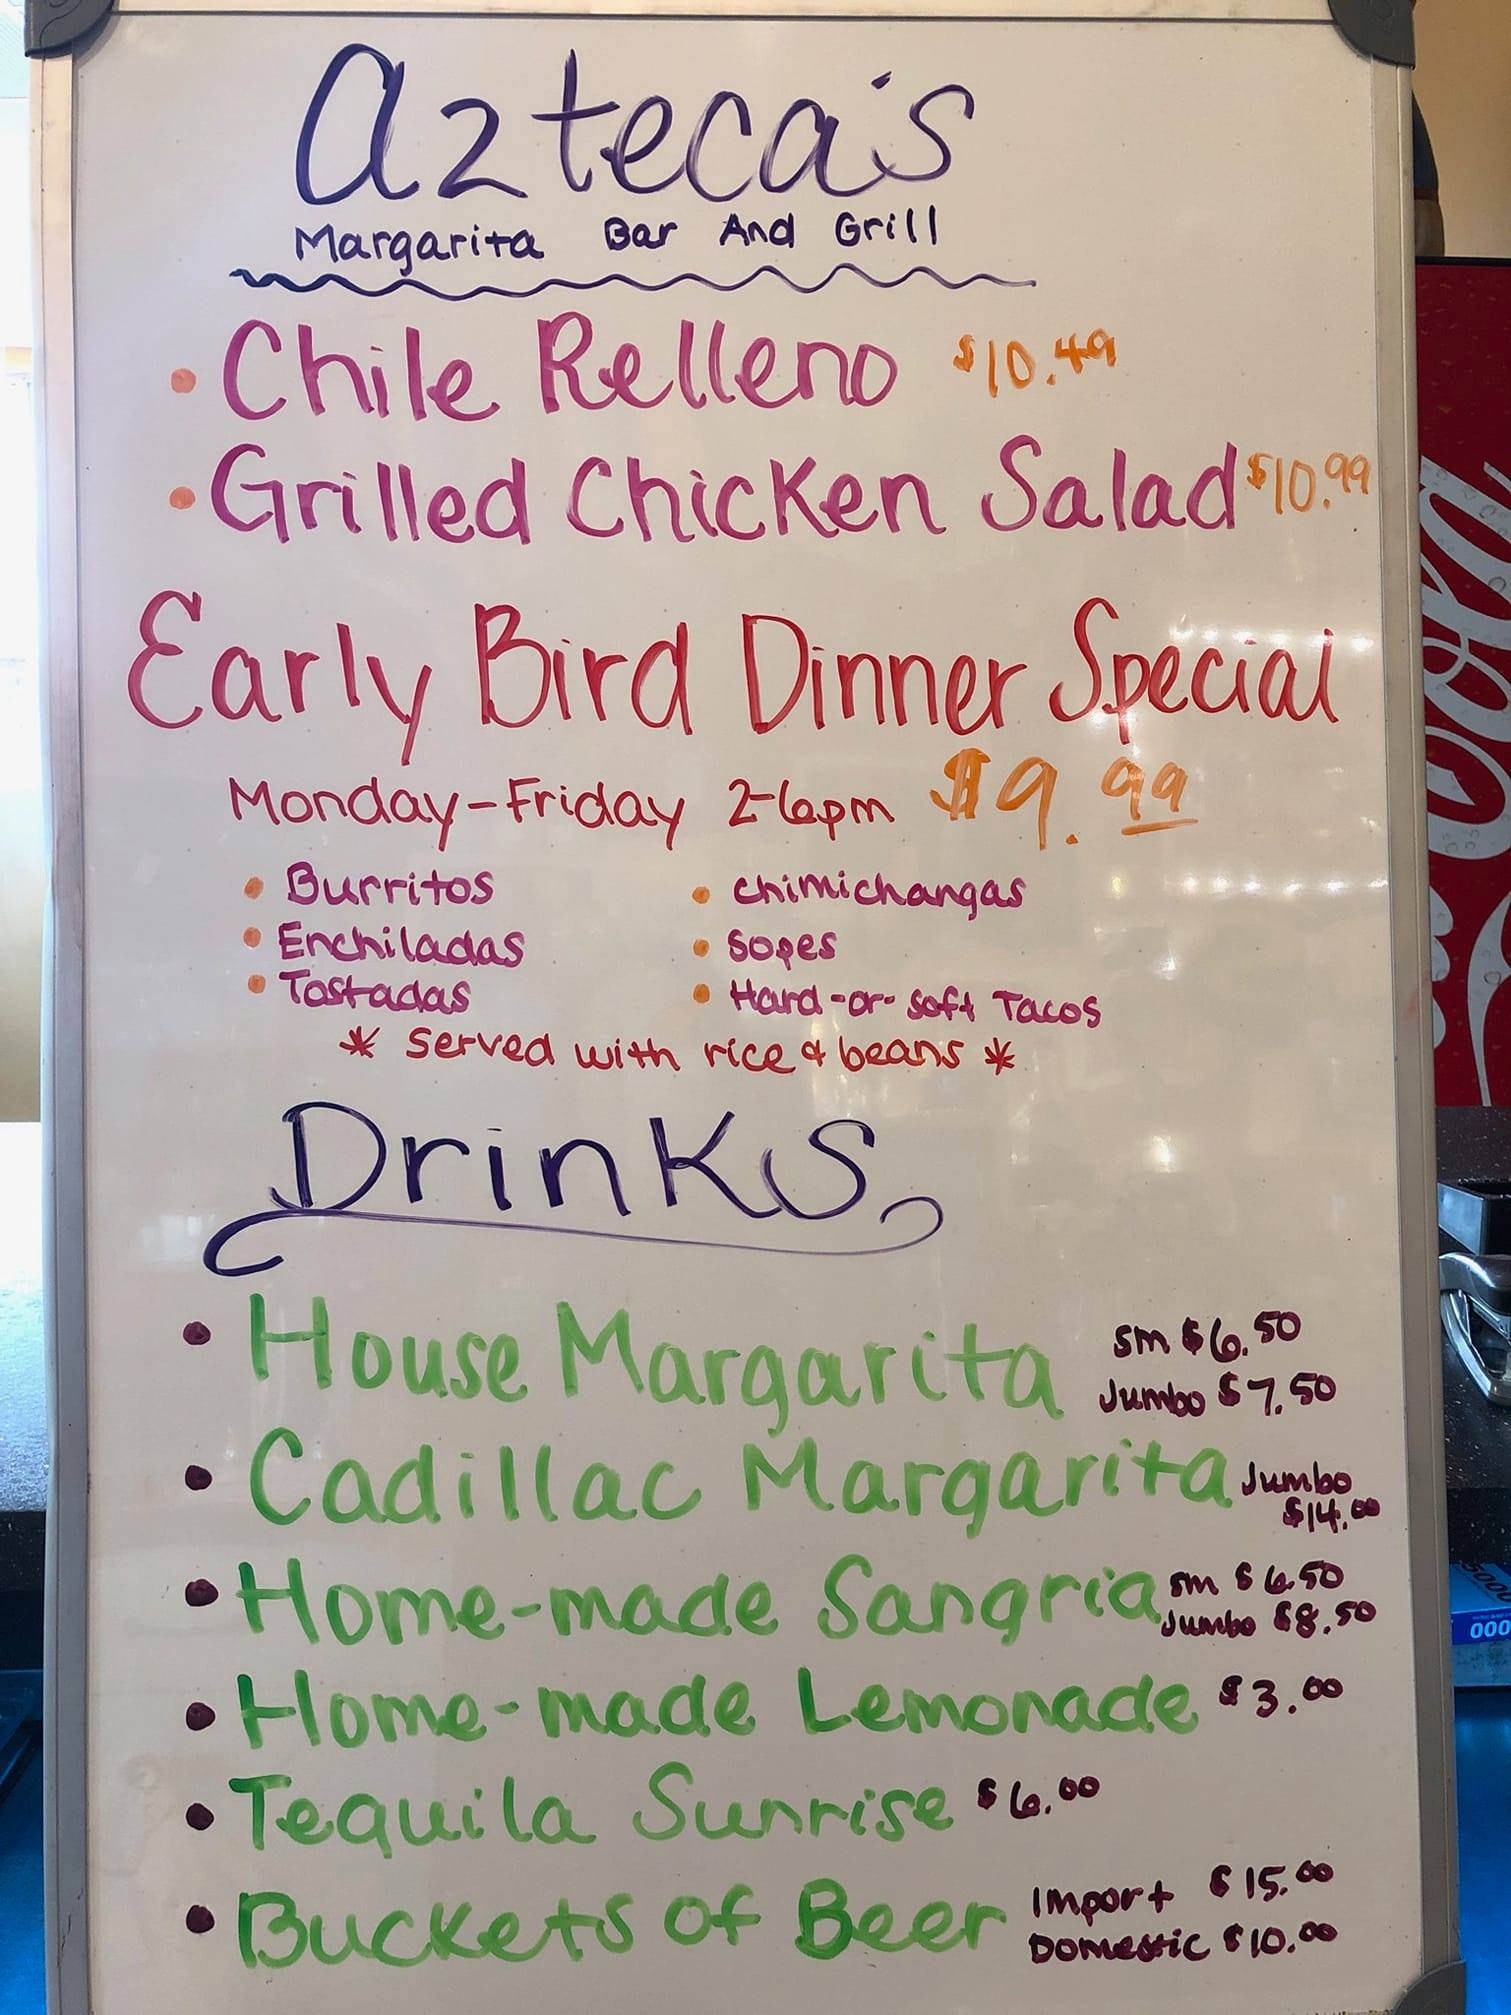 Azteca's
Margarita Bar And Grill
• Chile Relleno $10.49
• Grilled Chicken Salad $10.99
Early Bird Dinner Special
Monday-Friday 2-6pm $9.99
• Burritos • Chimichangas
• Enchiladas • Sopes
• Tostadas • Hard-or-Soft Tacos
* Served with rice & beans *
Drinks
• House Margarita sm $6.50
Jumbo $7.50
• Cadillac Margarita Jumbo
$14.00
• Home-made Sangria sm $6.50
Jumbo $8.50
• Home-made Lemonade $3.00
• Tequila Sunrise $6.00
• Buckets of Beer Import $15.00
Domestic $10.00